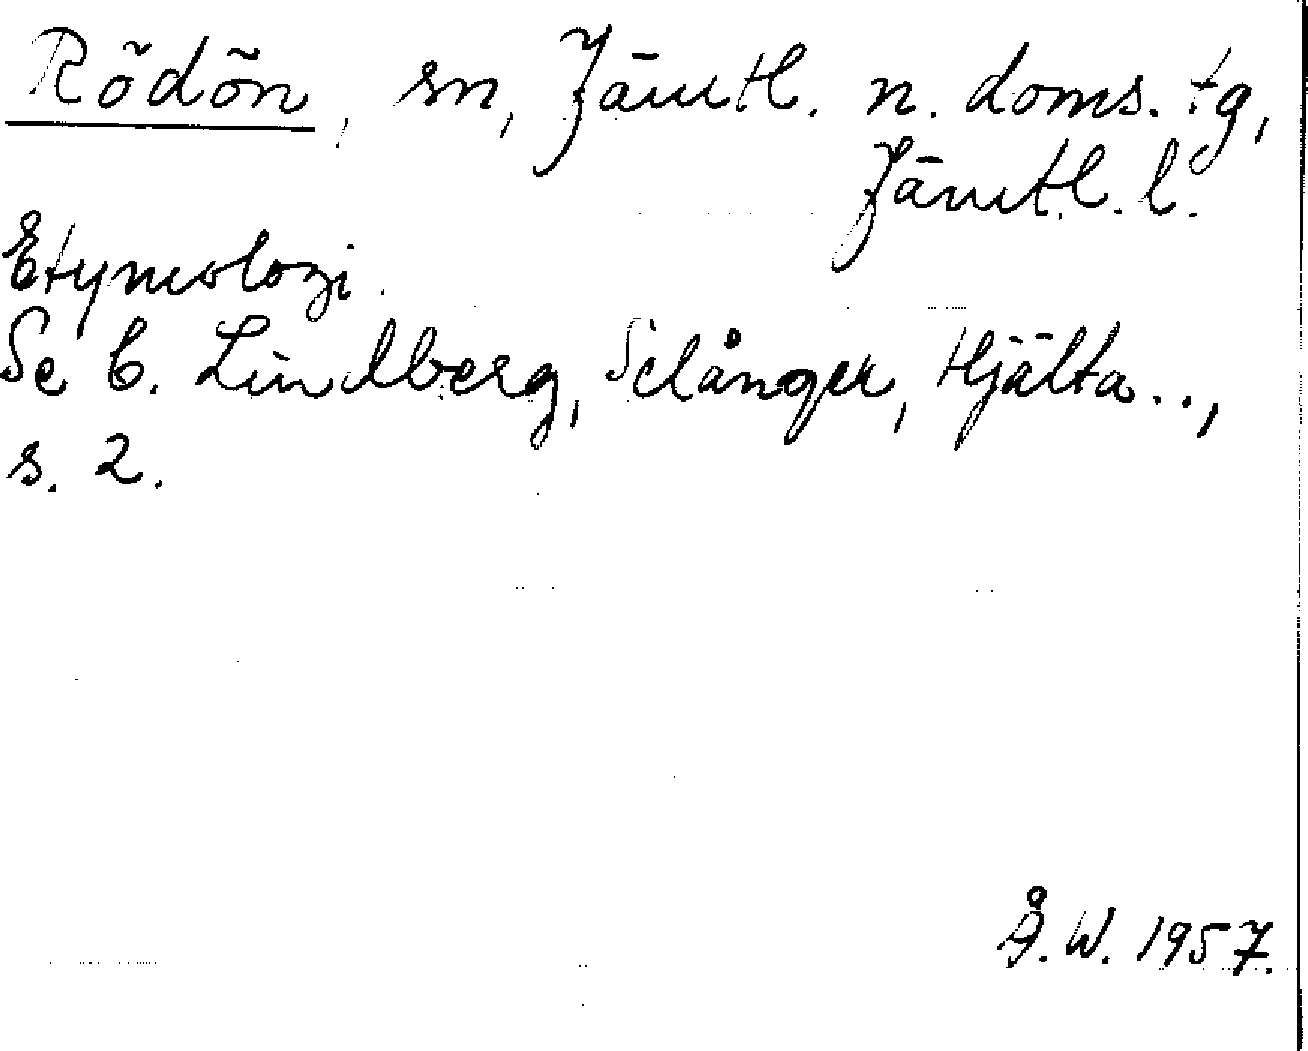 Rödön, sn, Jämtl. n. doms. tg,
Jämtl. l.
Etymologi.
Se C. Lindberg, Selånger, Hjälta..,
s. 2.
Å.W. 1957.